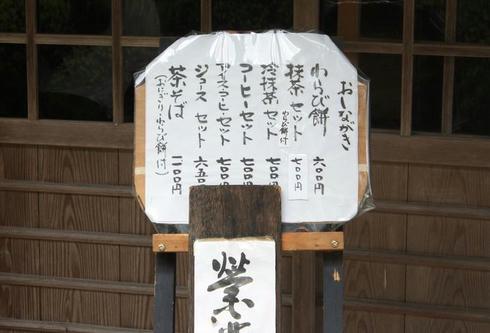 おしながき
わらび餅 六〇〇円
抹茶セット わらび餅付 七〇〇円
冷抹茶セット 七〇〇円
コーヒーセット 七〇〇円
アイスコーヒーセット 七〇〇円
ジュースセット 六五〇
茶そば 一一〇〇円
(おにぎり・わらび餅付)
営業